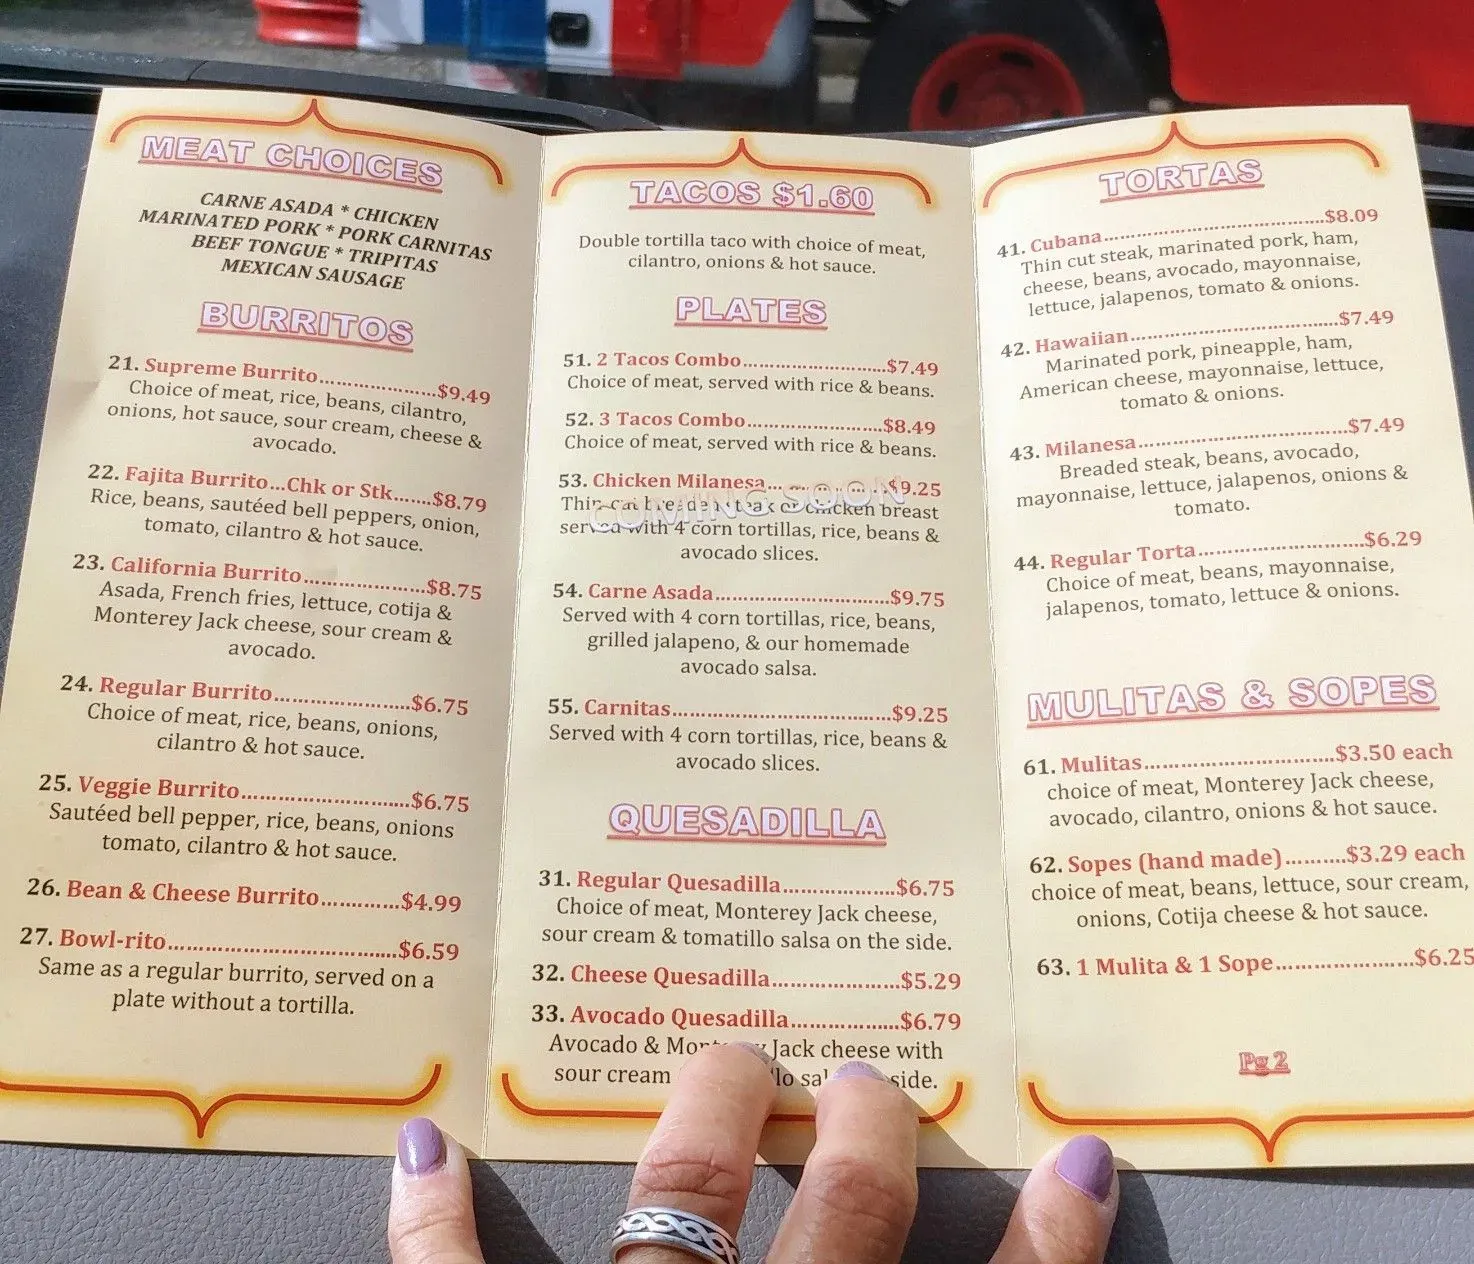 MEAT CHOICES
CARNE ASADA * CHICKEN
MARINATED PORK * PORK CARNITAS
BEEF TONGUE * TRIPITAS
MEXICAN SAUSAGE
BURRITOS
21. Supreme Burrito....................$9.49
Choice of meat, rice, beans, cilantro,
onions, hot sauce, sour cream, cheese &
avocado.
22. Fajita Burrito...Chk or Stk......$8.79
Rice, beans, sautéed bell peppers, onion,
tomato, cilantro & hot sauce.
23. California Burrito.....................$8.75
Asada, French fries, lettuce, cotija &
Monterey Jack cheese, sour cream &
avocado.
24. Regular Burrito........................$6.75
Choice of meat, rice, beans, onions,
cilantro & hot sauce.
25. Veggie Burrito.............................$6.75
Sautéed bell pepper, rice, beans, onions
tomato, cilantro & hot sauce.
26. Bean & Cheese Burrito.............$4.99
27. Bowl-rito......................................$6.59
Same as a regular burrito, served on a
plate without a tortilla.
TACOS $1.60
Double tortilla taco with choice of meat,
cilantro, onions & hot sauce.
PLATES
51. 2 Tacos Combo..........................$7.49
Choice of meat, served with rice & beans.
52. 3 Tacos Combo.........................$8.49
Choice of meat, served with rice & beans.
53. Chicken Milanesa......................$9.25
COMING SOON
Thin cut breaded steak or chicken breast
served with 4 corn tortillas, rice, beans &
avocado slices.
54. Carne Asada................................$9.75
Served with 4 corn tortillas, rice, beans,
grilled jalapeno, & our homemade
avocado salsa.
55. Carnitas.......................................$9.25
Served with 4 corn tortillas, rice, beans &
avocado slices.
QUESADILLA
31. Regular Quesadilla...................$6.75
Choice of meat, Monterey Jack cheese,
sour cream & tomatillo salsa on the side.
32. Cheese Quesadilla.....................$5.29
33. Avocado Quesadilla..................$6.79
Avocado & Monterey Jack cheese with
sour cream side.
TORTAS
41. Cubana.......................................$8.09
Thin cut steak, marinated pork, ham,
cheese, beans, avocado, mayonnaise,
lettuce, jalapenos, tomato & onions.
42. Hawaiian.....................................$7.49
Marinated pork, pineapple, ham,
American cheese, mayonnaise, lettuce,
tomato & onions.
43. Milanesa.....................................$7.49
Breaded steak, beans, avocado,
mayonnaise, lettuce, jalapenos, onions &
tomato.
44. Regular Torta.............................$6.29
Choice of meat, beans, mayonnaise,
jalapenos, tomato, lettuce & onions.
MULITAS & SOPES
61. Mulitas.................................$3.50 each
choice of meat, Monterey Jack cheese,
avocado, cilantro, onions & hot sauce.
62. Sopes (hand made)..........$3.29 each
choice of meat, beans, lettuce, sour cream,
onions, Cotija cheese & hot sauce.
63. 1 Mulita & 1 Sope.......................$6.25
Pg 2